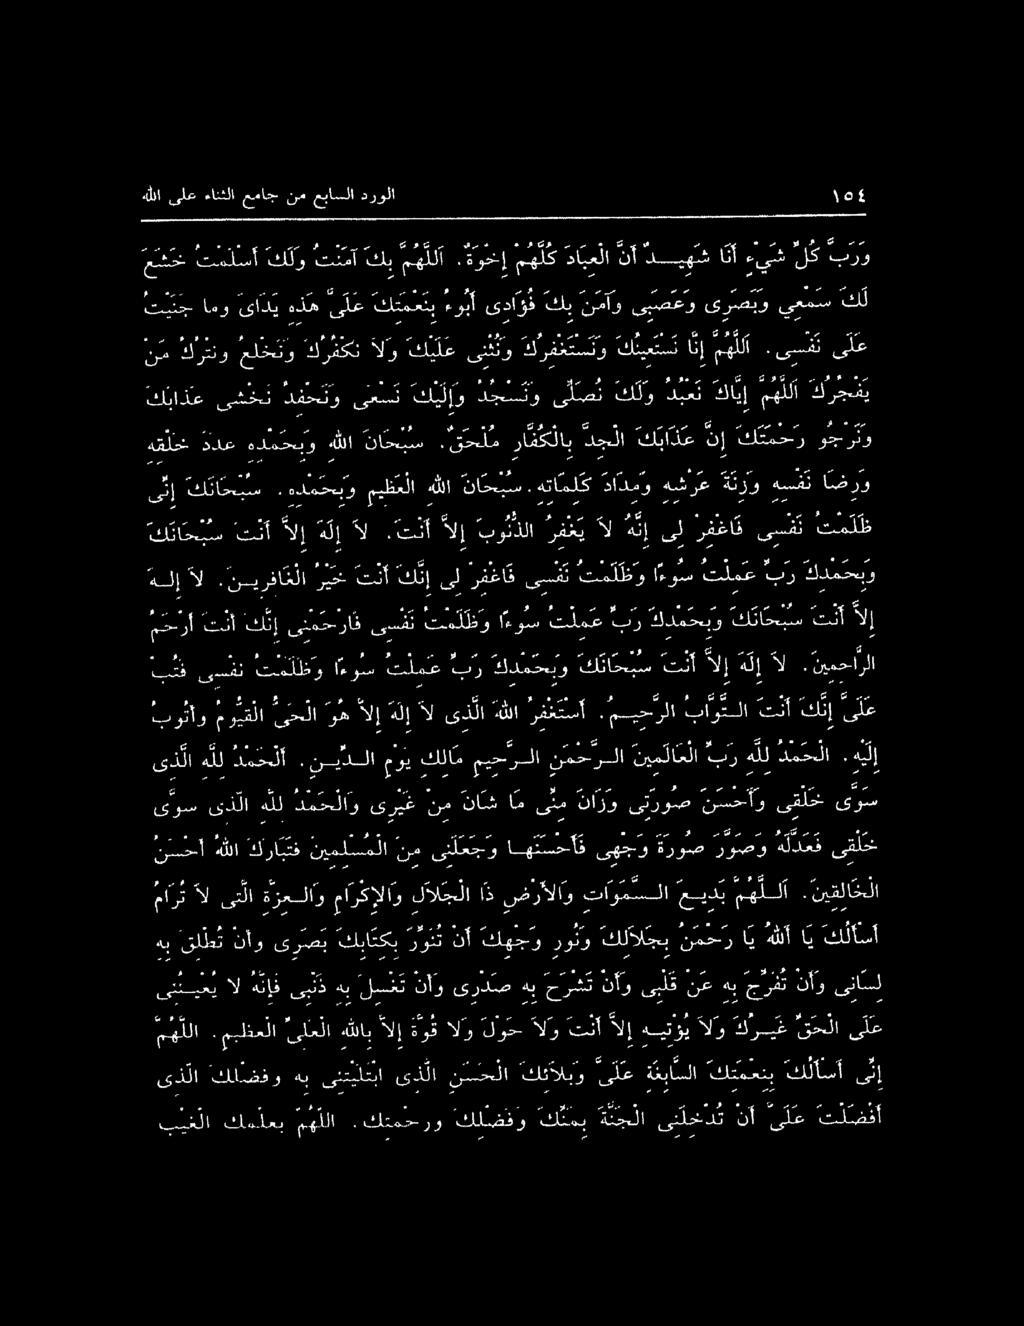 ١٥٤ الورد السابع من جامع الثناء على الله
وَرَبَّ كُلِّ شَيْءٍ أَنَا شَهِيـــدٌ أَنَّ الْعِبَادَ كُلَّهُمْ إِخْوَةٌ. اَللَّهُمَّ بِكَ آمَنْتُ وَلَكَ أَسْلَمْتُ خَشَعَ
لَكَ سَمْعِي وَبَصَرِى وَعَصَبِى وَآمَنَ بِكَ فُؤَادِى أَبُوءُ بِنَعْمَتِكَ عَلَىَّ هَذِهِ يَدَاىَ وما جَنَيْتُ
عَلَى نَفْسِى. اَللَّهُمَّ إِنَّا نَسْتَعِينُكَ وَنَسْتَغْفِرُكَ وَنُثْنِى عَلَيْكَ وَلاَ نَكْفُرُكَ وَنَخْلَعُ ونَتْرُكُ مَنْ
يَفْجُرُكَ اَللَّهُمَّ إِيَّاكَ نَعْبُدُ وَلَكَ نُصَلِّى وَنَسْجُدُ وَإِلَيْكَ نَسْعَى وَنَحْفِدُ نَخْشَى عَذَابَكَ
وَنَرْجُو رَحْمَتَكَ إِنَّ عَذَابَكَ الْجِدَّ بِالْكُفَّارِ مُلْحَقٌ. سُبْحَانَ اللهِ وَبِحَمْدِهِ عَدَدَ خَلْقِهِ
وَرِضَا نَفْسِهِ وَزِنَةَ عَرْشِهِ وَمِدَادَ كَلِمَاتِهِ. سُبْحَانَ اللهِ الْعَظِيمِ وَبِحَمْدِهِ. سُبْحَانَكَ إِنِّى
ظَلَمْتُ نَفْسِى فَاغْفِرْ لِى إِنَّهُ لاَ يَغْفِرُ الذُّنُوبَ إِلاَّ أَنْتَ. لاَ إِلَهَ إِلاَّ أَنْتَ سُبْحَانَكَ
وَبِحَمْدِكَ رَبِّ عَمِلْتُ سُوءًا وَظَلَمْتُ نَفْسِى فَاغْفِرْ لِى إِنَّكَ أَنْتَ خَيْرُ الْغَافِرِيـنَ. لاَ إِلـهَ
إِلاَّ أَنْتَ سُبْحَانَكَ وَبِحَمْدِكَ رَبِّ عَمِلْتُ سُوءًا وَظَلَمْتُ نَفْسِى فَارْحَمْنِى إِنَّكَ أَنْتَ أَرْحَمُ
الرَّاحِمِينَ. لاَ إِلَهَ إِلاَّ أَنْتَ سُبْحَانَكَ وَبِحَمْدِكَ رَبِّ عَمِلْتُ سُوءًا وَظَلَمْتُ نَفْسِى فَتُبْ
عَلَىَّ إِنَّكَ أَنْتَ الـتَّوَّابُ الرَّحِيـمُ. أَسْتَغْفِرُ اللهَ الَّذِى لاَ إِلَهَ إِلاَّ هُوَ الْحَىُّ الْقَيُّومُ وَأَتُوبُ
إِلَيْهِ. الْحَمْدُ لِلَّهِ رَبِّ الْعَالَمِينَ الـرَّحْمَنِ الـرَّحِيمِ مَالِكِ يَوْمِ الـدِّيـنِ. اَلْحَمْدُ لِلَّهِ الَّذِى
سَوَّى خَلْقِى وَأَحْسَنَ صُورَتِى وَزَانَ مِنِّى مَا شَانَ مِنْ غَيْرِى وَالْحَمْدُ لِلَّهِ الَّذِى سَوَّى
خَلْقِى فَعَدَّلَهُ وَصَوَّرَ صُورَةَ وَجْهِى فَأَحْسَنَهـا وَجَعَلَنِى مِنَ الْمُسْلِمِينَ فَتَبَارَكَ اللهُ أَحْسَنُ
الْخَالِقِينَ. اَلـلَّهُمَّ بَدِيـعَ الـسَّمَوَاتِ وَالأَرْضِ ذَا الْجَلاَلِ وَالإِكْرَامِ وَالـعِزَّةِ الَّتِى لاَ تُرَامُ
أَسْأَلُكَ يَا اَللهُ يَا رَحْمَنُ بِجَلاَلِكَ وَنُورِ وَجْهِكَ أَنْ تُنَوِّرَ بِكِتَابِكَ بَصَرِى وَأَنْ تُطْلِقَ بِهِ
لِسَانِى وَأَنْ تُفَرِّجَ بِهِ عَنْ قَلْبِى وَأَنْ تَشْرَحَ بِهِ صَدْرِى وَأَنْ تَغْسِلَ بِهِ ذَنْبِى فَإِنَّهُ لاَ يُعْيـنُنِى
عَلَى الْحَقِّ غَيـرُكَ وَلاَ يُؤْتِيـهِ إِلاَّ أَنْتَ وَلاَ حَوْلَ وَلاَ قُوَّةَ إِلاَّ بِاللهِ الْعَلِىِّ الْعَظِيمِ. اللَّهُمَّ
إِنِّى أَسْأَلُكَ بِنِعْمَتِكَ السَّابِغَةِ عَلَىَّ وَبَلاَئِكَ الْحَسَنِ الَّذِى ابْتَلَيْتَنِى بِهِ وَفَضْلِكَ الَّذِى
أَفْضَلْتَ عَلَىَّ أَنْ تُدْخِلَنِى الْجَنَّةَ بِمَنِّكَ وَفَضْلِكَ وَرَحْمَتِكَ. اللَّهُمَّ بِعِلْمِكَ الْغَيْبَ